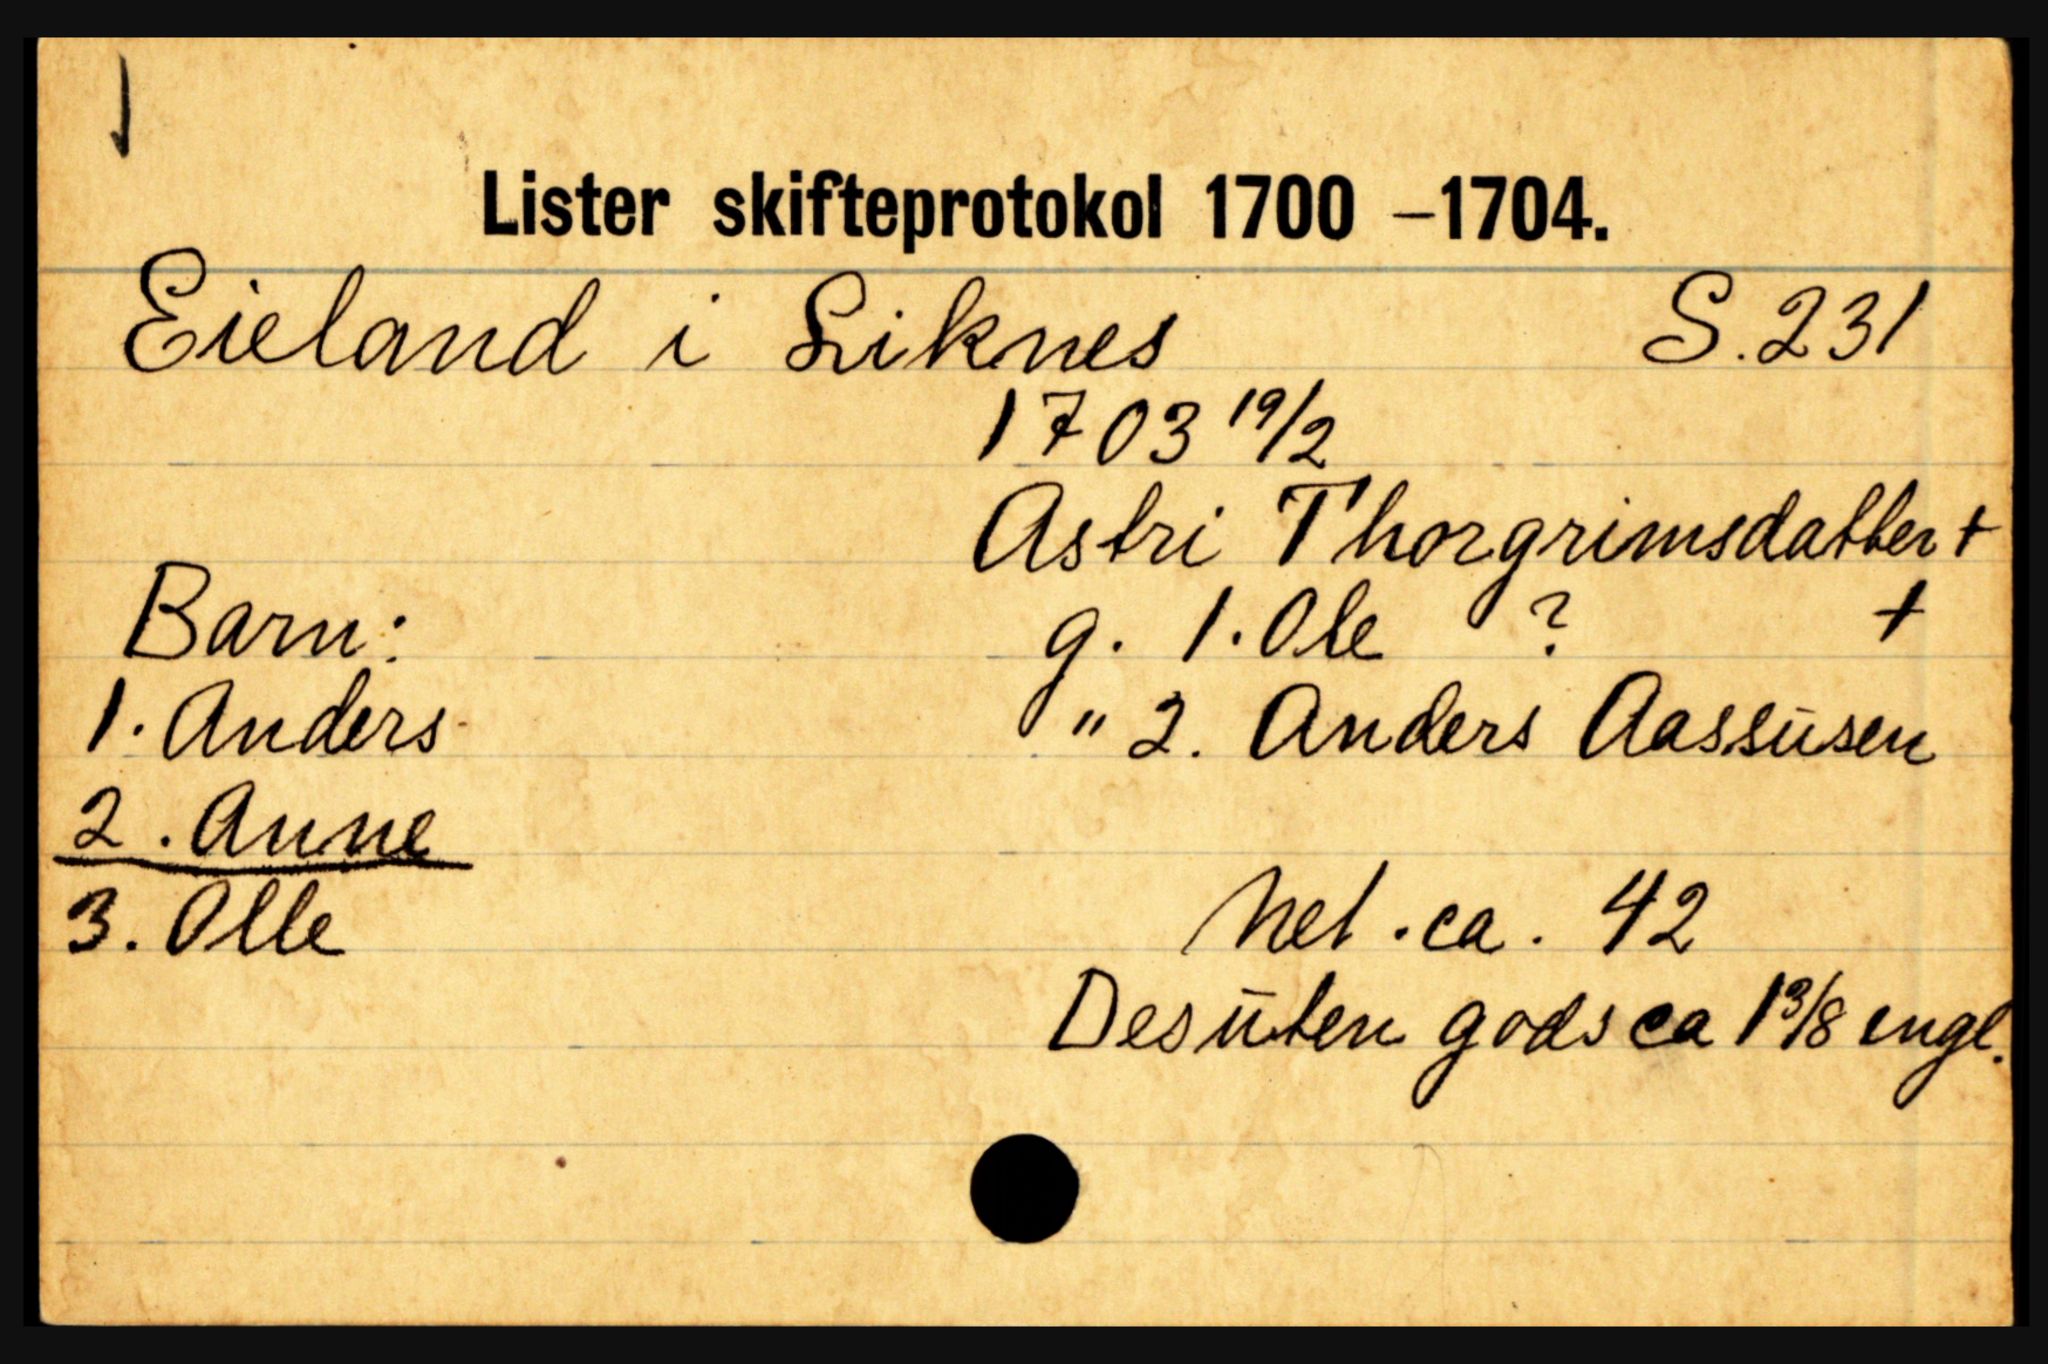 Lister skifteprotokol 1700 –1704.
Eieland i Liknes S. 231
1703 19/2
Astri Thorgrimsdatter +
Barn: g. 1. Ole ? +
1. Anders " 2. Anders Aassūsen
2. Anne
3. Olle Net. ca. 42
Desūten gods ca 1 3/8 engl.